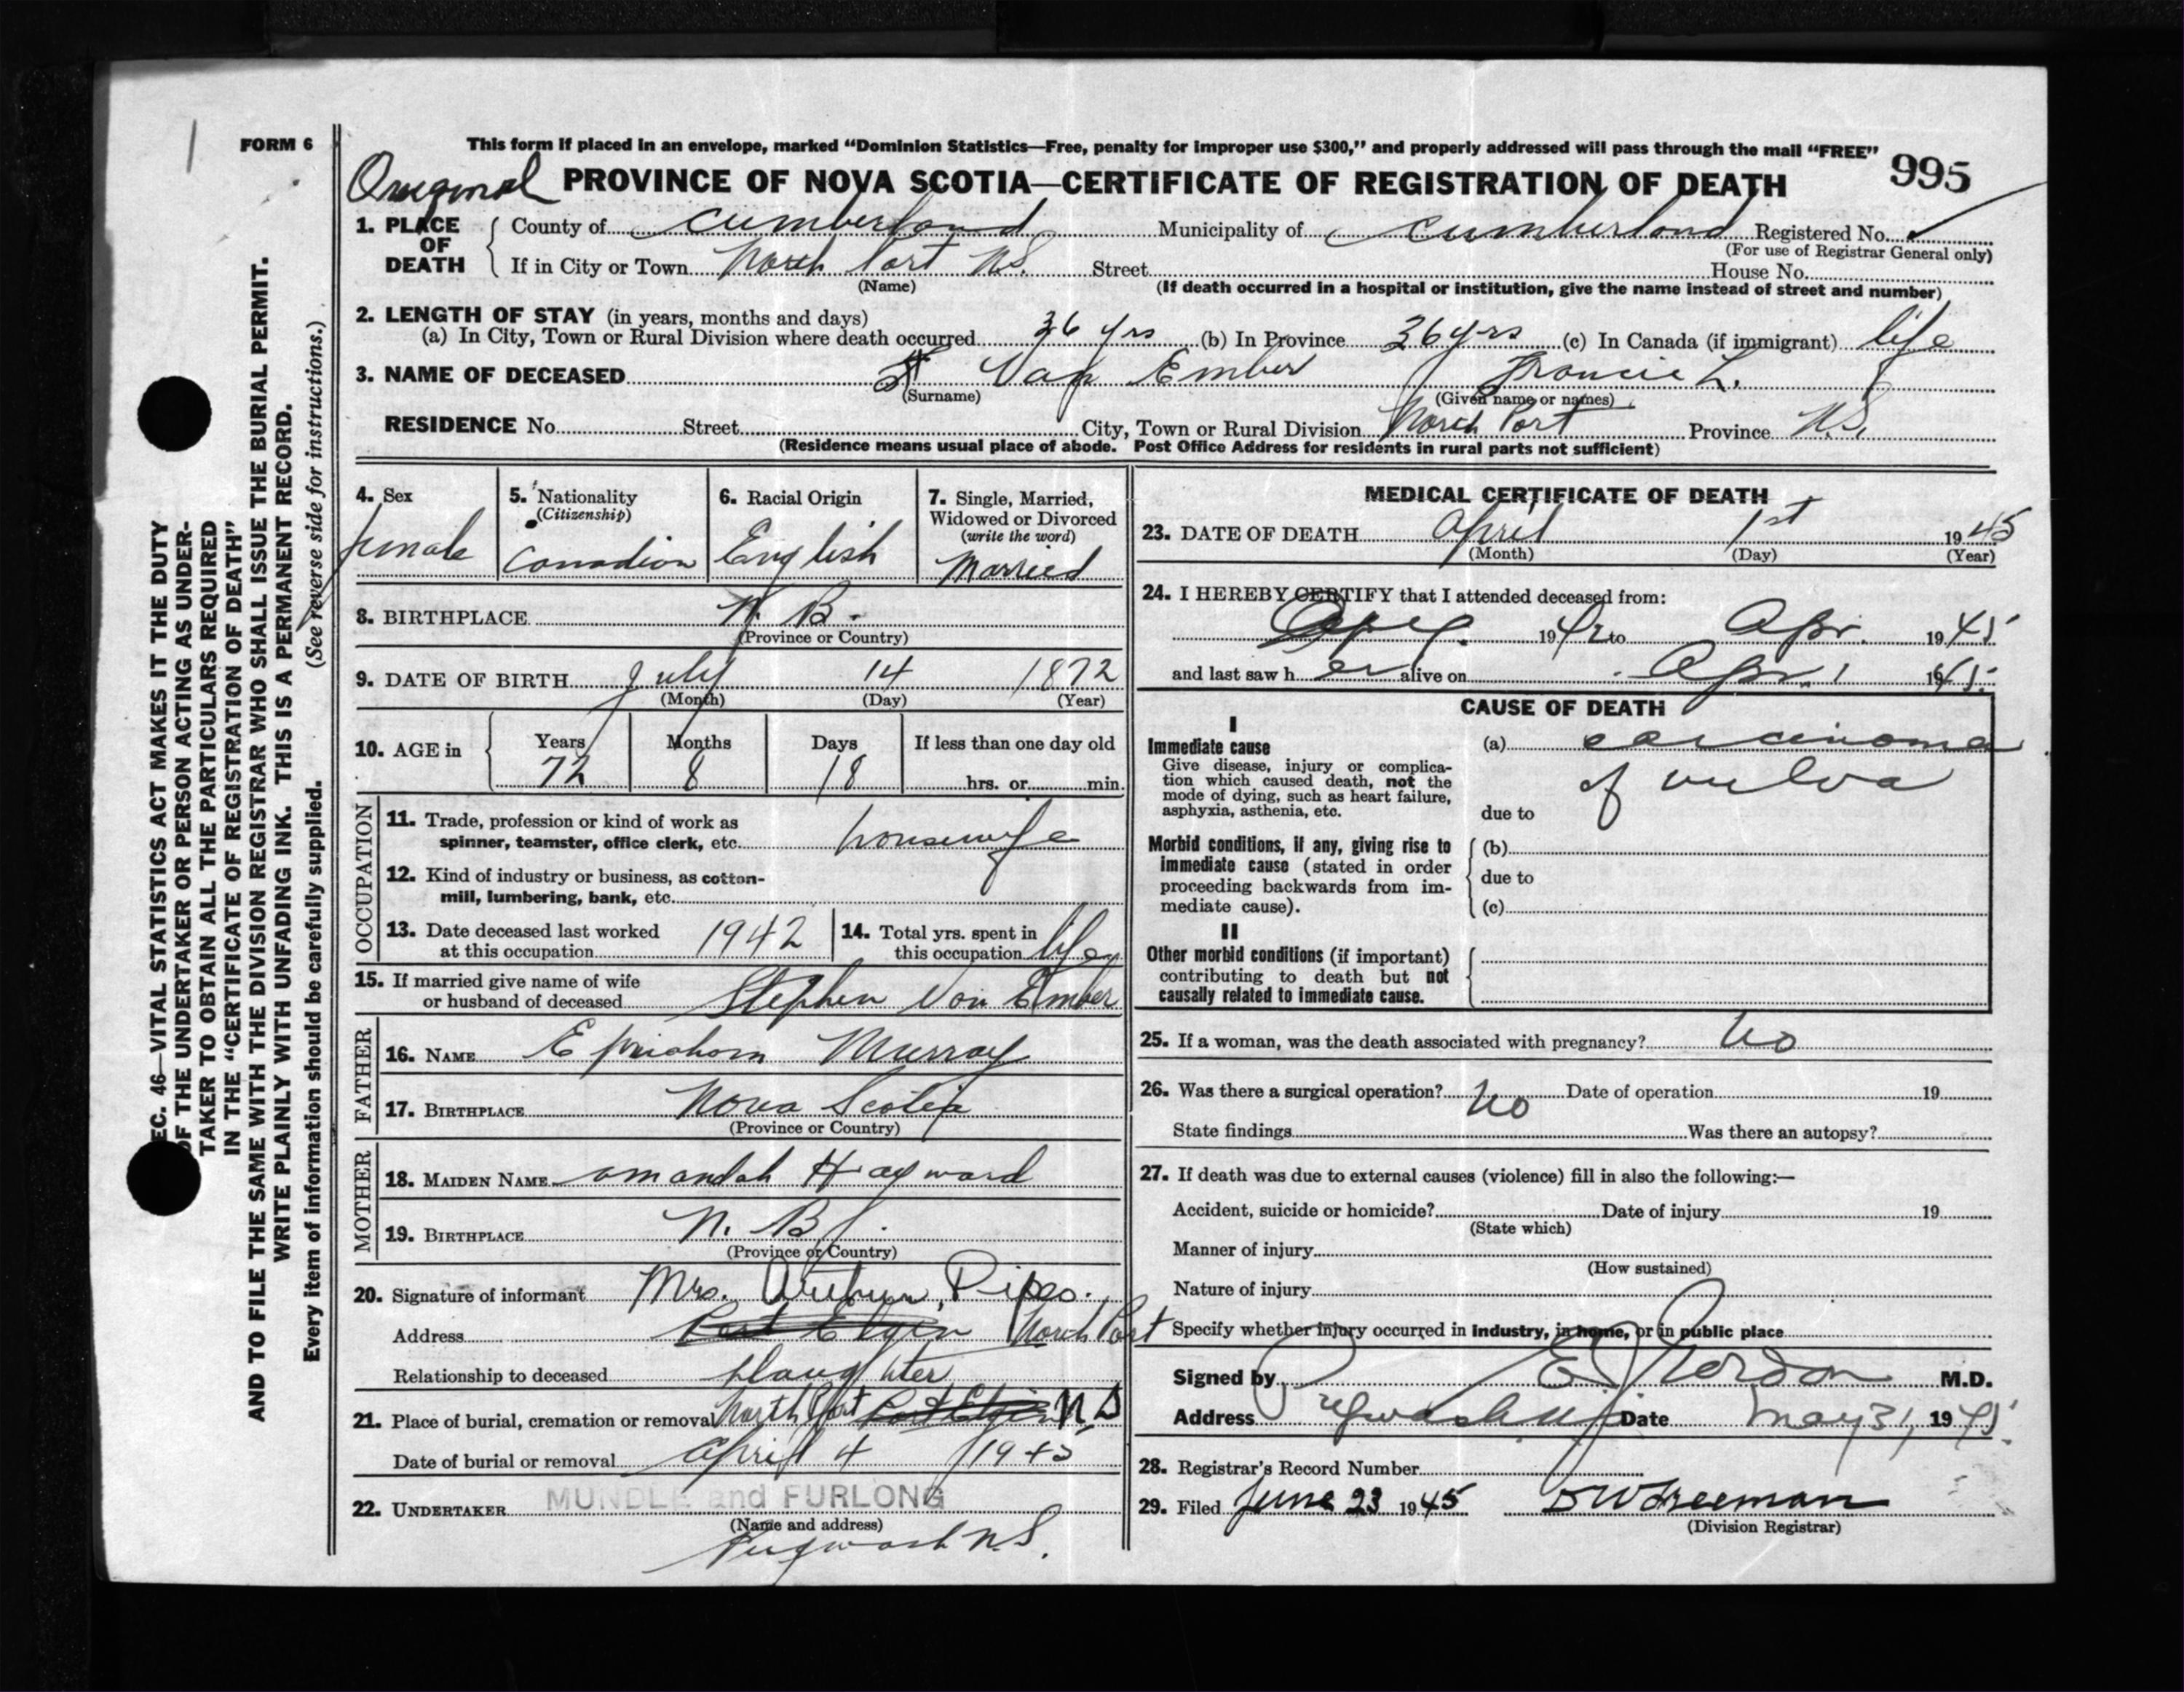 FORM 6
This form if placed in an envelope, marked “Dominion Statistics—Free, penalty for improper use $300,” and properly addressed will pass through the mail “FREE”
Original PROVINCE OF NOVA SCOTIA—CERTIFICATE OF REGISTRATION OF DEATH 995
1. PLACE OF DEATH
County of Cumberland Municipality of Cumberland Registered No.
(For use of Registrar General only)
If in City or Town North Port N.S. Street House No.
(Name) (If death occurred in a hospital or institution, give the name instead of street and number)
2. LENGTH OF STAY (in years, months and days)
(a) In City, Town or Rural Division where death occurred 36 yrs (b) In Province 36 yrs (c) In Canada (if immigrant) life
3. NAME OF DECEASED Van Ember Francis L.
(Surname) (Given name or names)
RESIDENCE No. Street City, Town or Rural Division North Port Province N.S.
(Residence means usual place of abode. Post Office Address for residents in rural parts not sufficient)
4. Sex
female
5. Nationality
(Citizenship)
Canadian
6. Racial Origin
English
7. Single, Married,
Widowed or Divorced
(write the word)
Married
8. BIRTHPLACE N. B.
(Province or Country)
9. DATE OF BIRTH July 14 1872
(Month) (Day) (Year)
10. AGE in
Years Months Days If less than one day old
72 8 18 hrs. or min.
OCCUPATION
11. Trade, profession or kind of work as
spinner, teamster, office clerk, etc. housewife
12. Kind of industry or business, as cotton-
mill, lumbering, bank, etc.
13. Date deceased last worked
at this occupation 1942
14. Total yrs. spent in
this occupation life
15. If married give name of wife
or husband of deceased Stephen Van Ember
FATHER
16. NAME Ephriahom Murray
17. BIRTHPLACE Nova Scotia
(Province or Country)
MOTHER
18. MAIDEN NAME amandah Hayward
19. BIRTHPLACE N. B.
(Province or Country)
20. Signature of informant Mrs. Arthur
Address Port Elgin North Port
Relationship to deceased daughter
21. Place of burial, cremation or removal North Port Port Elgin N S
Date of burial or removal April 4 1945
22. UNDERTAKER MUNDLE and FURLONG
(Name and address)
Pugwash N.S.
MEDICAL CERTIFICATE OF DEATH
23. DATE OF DEATH April 1st 1945
(Month) (Day) (Year)
24. I HEREBY CERTIFY that I attended deceased from:
1942 to Apr. 1945
and last saw h er alive on Apr. 1 1945
CAUSE OF DEATH
I
Immediate cause
Give disease, injury or complica-
tion which caused death, not the
mode of dying, such as heart failure,
asphyxia, asthenia, etc.
(a) carcinoma
of vulva
due to
Morbid conditions, if any, giving rise to
immediate cause (stated in order
proceeding backwards from im-
mediate cause).
(b)
due to
(c)
II
Other morbid conditions (if important)
contributing to death but not
causally related to immediate cause.
25. If a woman, was the death associated with pregnancy? No
26. Was there a surgical operation? No Date of operation 19
State findings Was there an autopsy?
27. If death was due to external causes (violence) fill in also the following:—
Accident, suicide or homicide? Date of injury 19
(State which)
Manner of injury
(How sustained)
Nature of injury
Specify whether injury occurred in industry, in home, or in public place
Signed by M.D.
Address Pugwash N.S. Date May 31, 1945
28. Registrar's Record Number
29. Filed June 23 1945 D W Freeman
(Division Registrar)
EC. 46—VITAL STATISTICS ACT MAKES IT THE DUTY
OF THE UNDERTAKER OR PERSON ACTING AS UNDER-
TAKER TO OBTAIN ALL THE PARTICULARS REQUIRED
IN THE “CERTIFICATE OF REGISTRATION OF DEATH”
AND TO FILE THE SAME WITH THE DIVISION REGISTRAR WHO SHALL ISSUE THE BURIAL PERMIT.
WRITE PLAINLY WITH UNFADING INK. THIS IS A PERMANENT RECORD.
Every item of information should be carefully supplied. (See reverse side for instructions.)